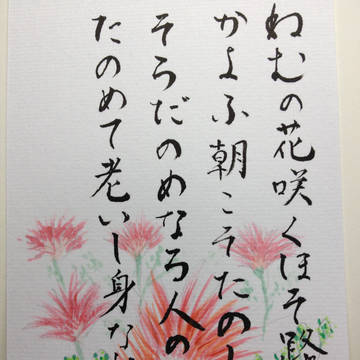 ねむの花咲くほそ路
かよふ朝こそたのし
そらだのめなる人の
たのめて老いし身な